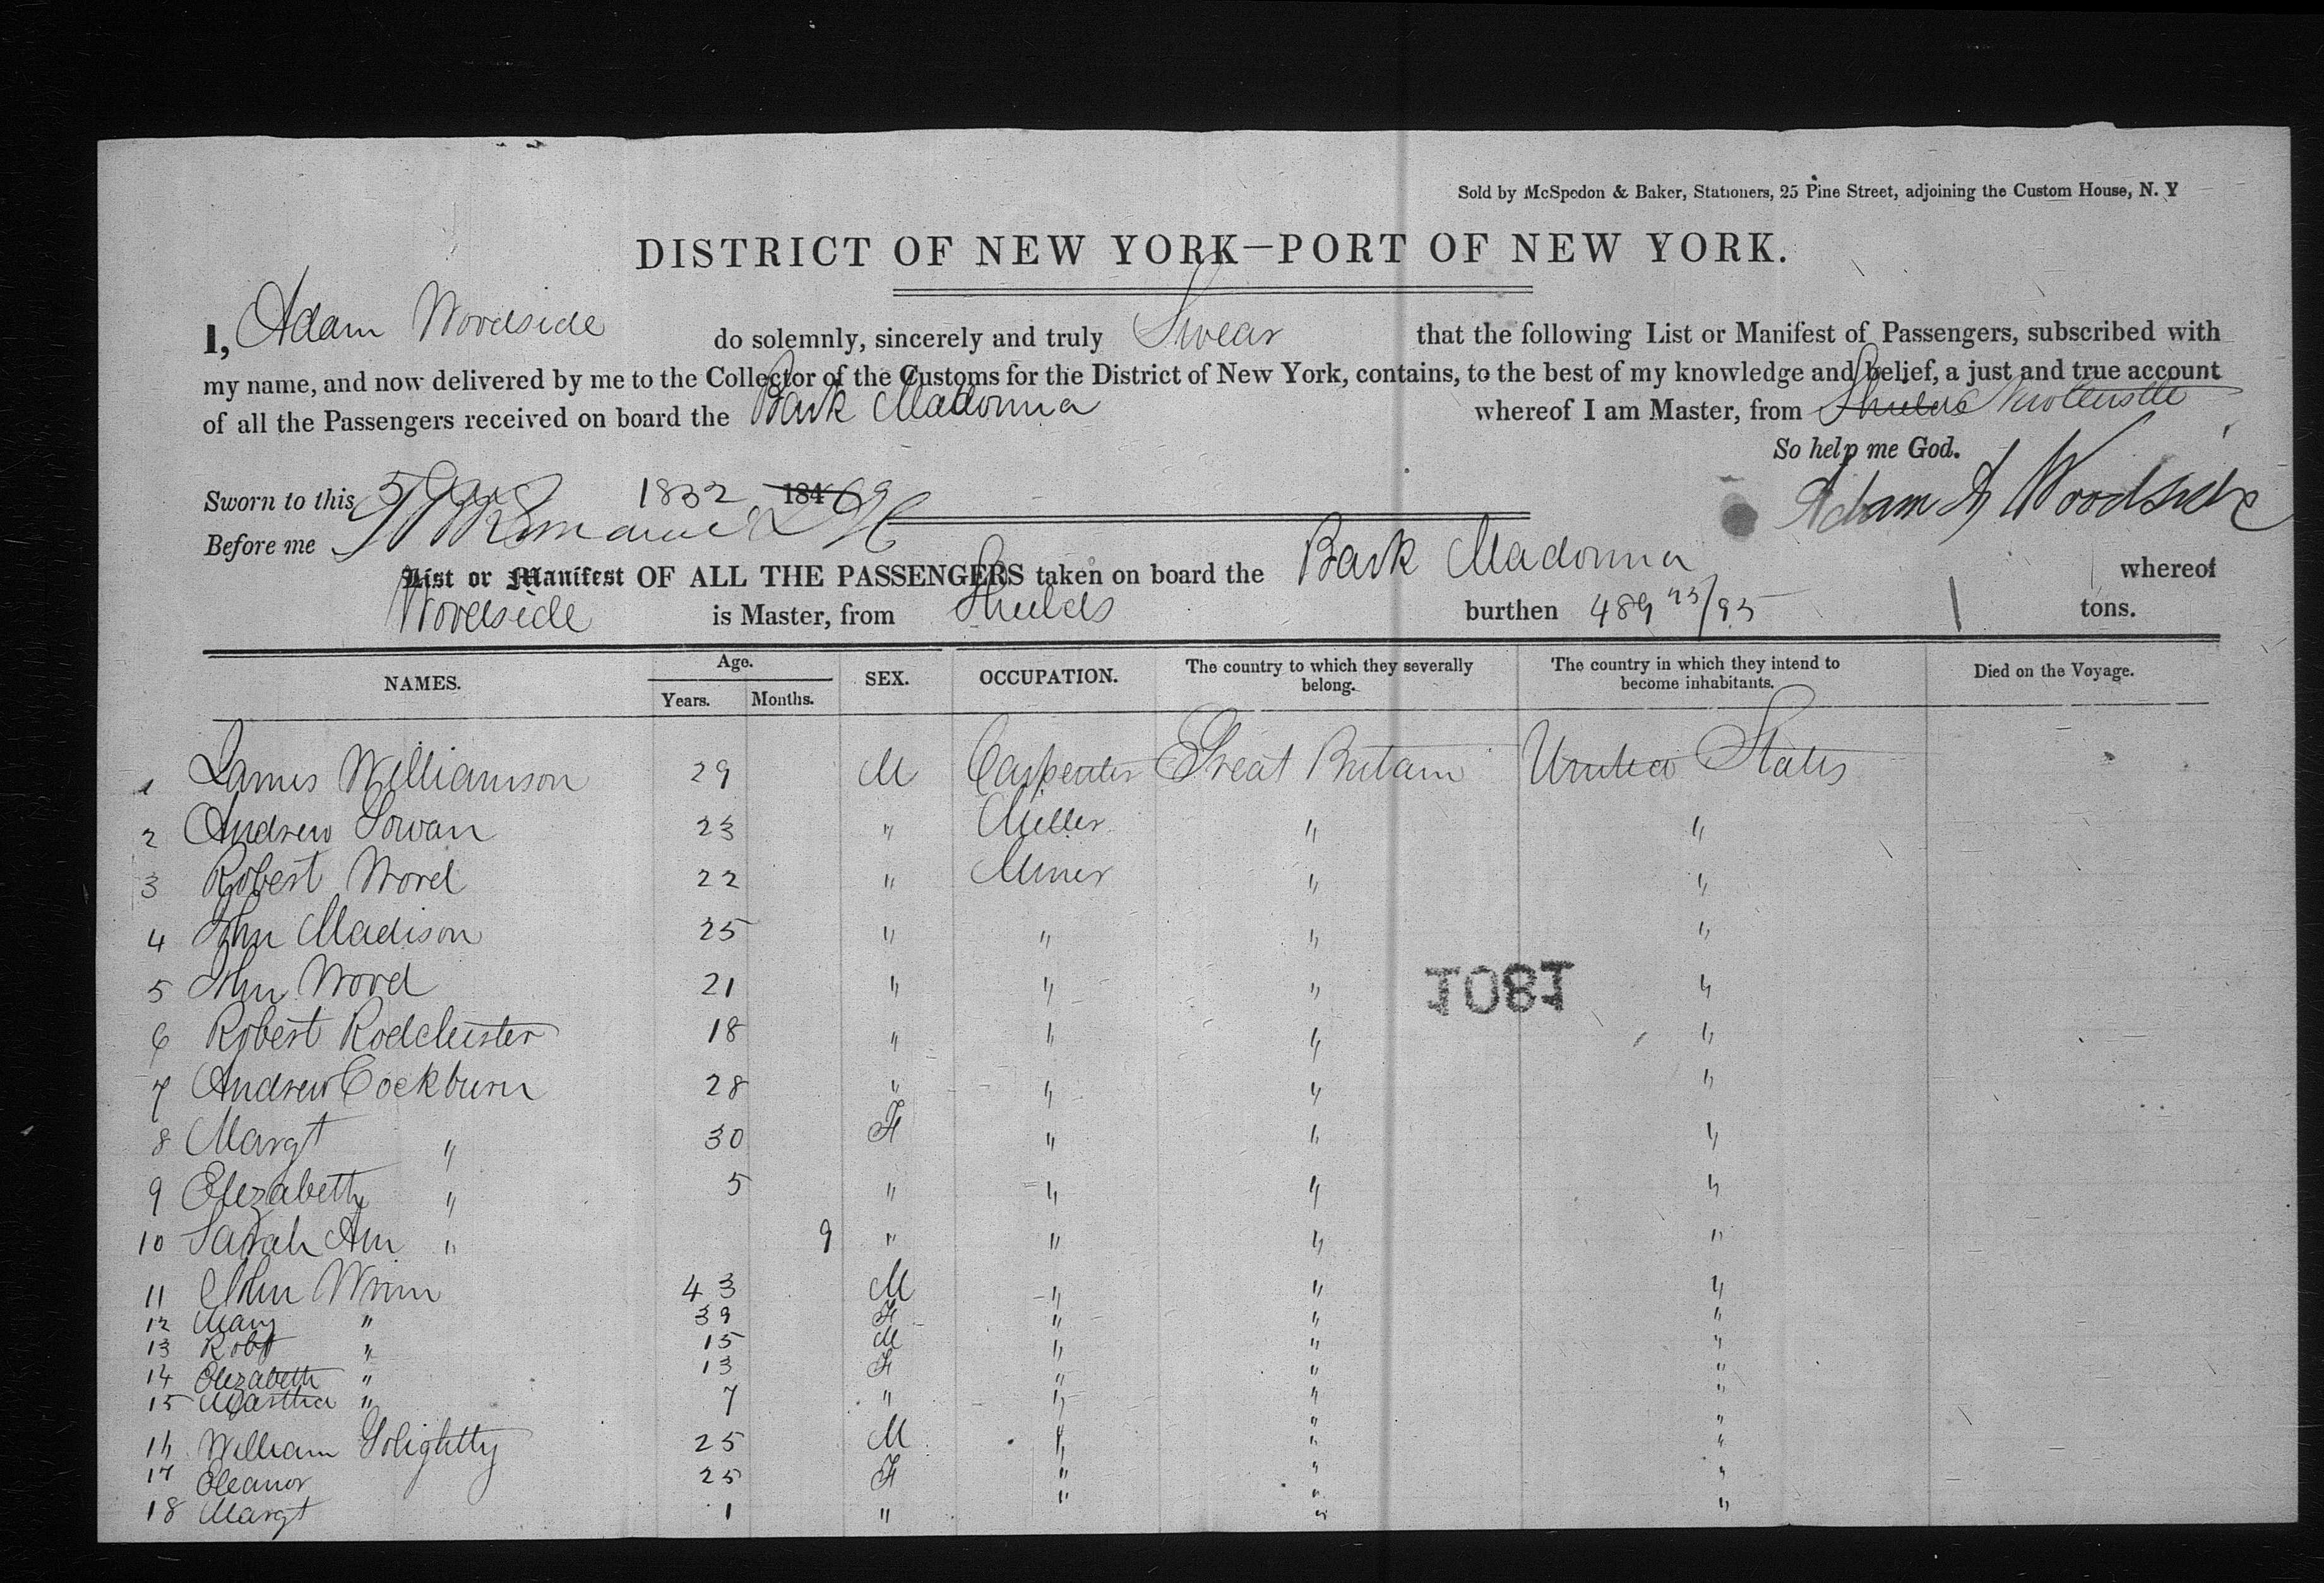 Sold by McSpedon & Baker, Stationers, 25 Pine Street, adjoining the Custom House, N. Y
DISTRICT OF NEW YORK—PORT OF NEW YORK.
I, Adam Woodside do solemnly, sincerely and truly Swear that the following List or Manifest of Passengers, subscribed with
my name, and now delivered by me to the Collector of the Customs for the District of New York, contains, to the best of my knowledge and belief, a just and true account
of all the Passengers received on board the Bark Madonna whereof I am Master, from Shields Newcastle
So help me God.
Sworn to this 5 1852, 184 Adam A Woodside
Before me
List or Manifest OF ALL THE PASSENGERS taken on board the Bark Madonna whereof
Woodside is Master, from Shields burthen 489 /95 tons.
NAMES. Age. Years. Months. SEX. OCCUPATION. The country to which they severally belong. The country in which they intend to become inhabitants. Died on the Voyage.
1 James Williamson 29 M Carpenter Great Britain United States
2 Andrew Sowan 23 " Miller " "
3 Robert Wood 22 " Miner " "
4 John Madison 25 " " " "
5 John Wood 21 " " " "
1081
6 Robert Rodchester 18 " " " "
7 Andrew Cockburn 28 " " " "
8 Margt " 30 F " " "
9 Elizabeth " 5 " " " "
10 Sarah Ann " 9 " " " "
11 John Winn 43 M " " "
12 Mary " 39 F " " "
13 Robt " 15 M " " "
14 Elizabeth " 13 F " " "
15 Martha " 7 " " " "
16 William Golightly 25 M " " "
17 Eleanor 25 F " " "
18 Margt 1 " " " "